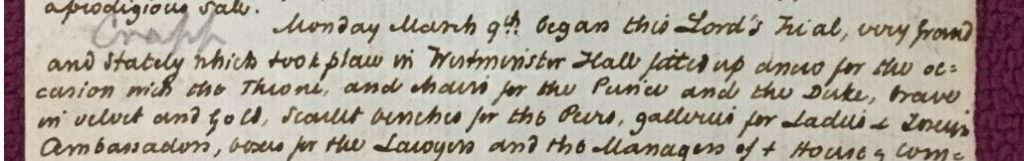 a prodigious Sale.
Monday March 9th began this Lord's Trial, very grand
and Stately which took place in Westminster Hall fitted up anew for the oc=
casion with the Throne, and chairs for the Prince and the Duke, brave
in velvet and gold, Scarlet benches for the Peers, galleries for Ladies & Foreign
Ambassadors, boxes for the Lawyers and the Managers of ye House of Com=